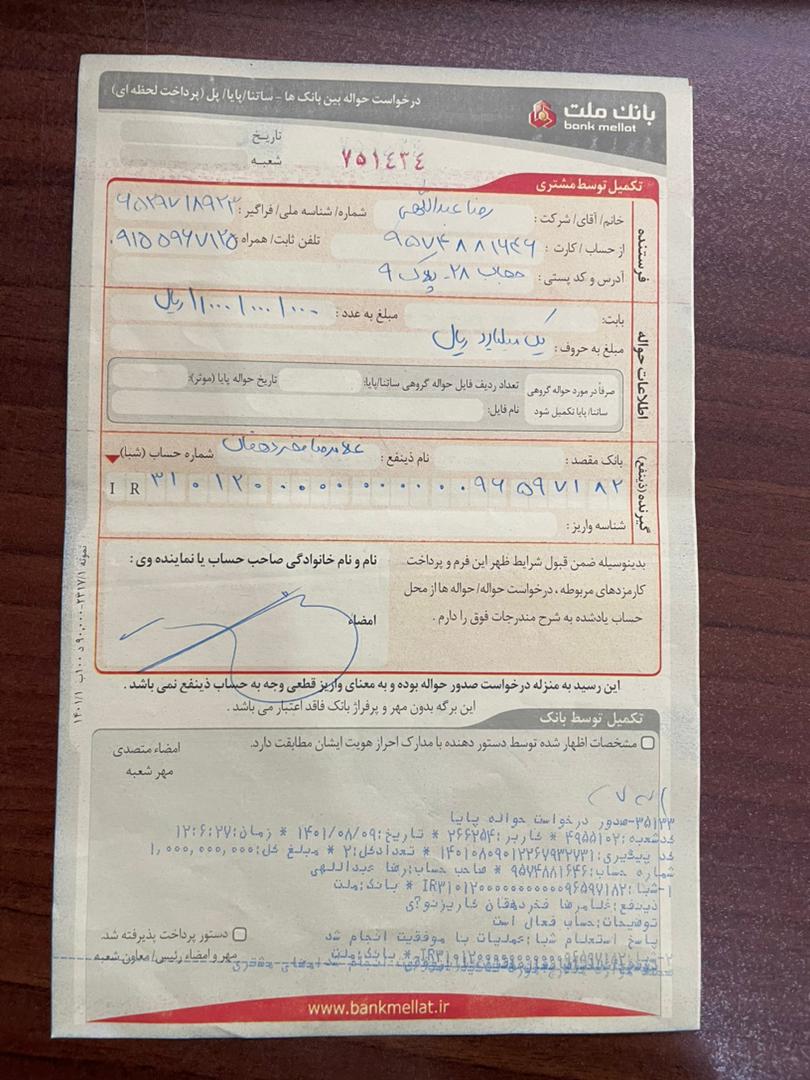 درخواست حواله بین بانک ها - ساتنا/پایا/ پل (پرداخت لحظه ای)
بانک ملت
bank mellat
تاریخ
شعبه
۷۵۱۴۳۴
تکمیل توسط مشتری
فرستنده
خانم/ آقای/ شرکت : رضا عبداللهی شماره/ شناسه ملی/ فراگیر :
از حساب / کارت : ۹۵۷۴۸۸۱۶۴۶ تلفن ثابت/ همراه : ۰۹۱۵۵۹۶۷۱۲۵
آدرس و کد پستی : حجاب ۲۸ - پلاک ۹
اطلاعات حواله
بابت : مبلغ به عدد : ۱/۰۰۰/۰۰۰/۰۰۰ ریال
مبلغ به حروف : یک میلیارد ریال
صرفاً در مورد حواله گروهی ساتنا/ پایا تکمیل شود
تعداد ردیف فایل حواله گروهی ساتنا/پایا: تاریخ حواله پایا (موثر):
نام فایل:
گیرنده (ذینفع)
بانک مقصد : نام ذینفع : غلامرضا فخردهقان شماره حساب (شبا)
I R ۳۱ ۰۱۲۰ ۰۰۰۰ ۰۰۰۰ ۰۰۹۶ ۵۹۷۱ ۸۲
شناسه واریز :
بدینوسیله ضمن قبول شرایط ظهر این فرم و پرداخت
کارمزدهای مربوطه ، درخواست حواله/ حواله ها از محل
حساب یادشده به شرح مندرجات فوق را دارم .
نام و نام خانوادگی صاحب حساب یا نماینده وی :
امضاء
این رسید به منزله درخواست صدور حواله بوده و به معنای واریز قطعی وجه به حساب ذینفع نمی باشد .
این برگه بدون مهر و پرفراژ بانک فاقد اعتبار می باشد .
تکمیل توسط بانک
مشخصات اظهار شده توسط دستور دهنده با مدارک احراز هویت ایشان مطابقت دارد.
امضاء متصدی
مهر شعبه
۳۵۱۳۳-صدور درخواست حواله پایا
کدشعبه:۴۹۵۵۱۰۲ * کاربر:۲۶۶۲۵۴ * تاریخ:۱۴۰۱/۰۸/۰۹ * زمان:۱۲:۶:۲۷
کد پیگیری:۱۴۰۱۰۸۰۹۰۱۲۲۶۷۹۳۲۷۳۱ * تعدادکل:۲ * مبلغ کل:۱,۰۰۰,۰۰۰,۰۰۰
شماره حساب:۹۵۷۴۸۸۱۶۴۶ * صاحب حساب:رضا عبداللهی
۱-شبا:IR۳۱۰۱۲۰۰۰۰۰۰۰۰۰۰۰۹۶۵۹۷۱۸۲ * بانک:ملت
ذینفع:غلامرضا فخردهقان کاریزنو?ی
توضیحات:حساب فعال است
پاسخ استعلام شبا:عملیات با موفقیت انجام شد
دستور پرداخت پذیرفته شد.
مهر و امضاء رئیس/ معاون شعبه
www.bankmellat.ir
نمونه ۲۳۱۷/۱-۹۰,۰۰۰ د ۱۰۰ب ۱۴۰۱/۱